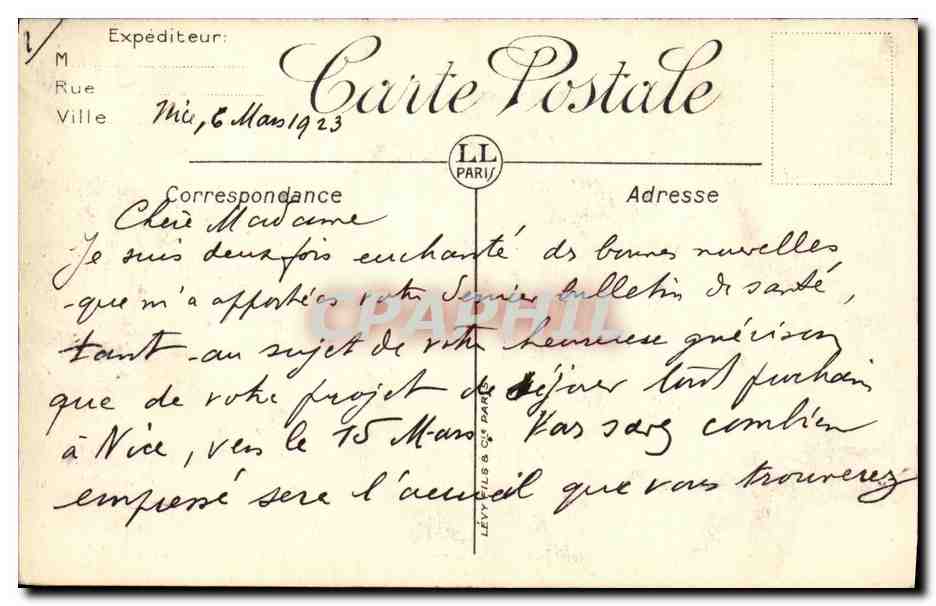 1/
Expéditeur:
M
Rue
Ville
Carte Postale
Nice, 6 Mars 1923
LL
PARIS
Correspondance
Adresse
Chère Madame
Je suis deux fois enchanté des bonnes nouvelles
que m'a apportées votre dernier bulletin de santé,
tant au sujet de votre heureuse guérison
que de votre projet de séjour tout prochain
à Nice, vers le 15 Mars. Vous savez combien
empressé sera l'accueil que vous trouverez
CPAPHIL
LÉVY FILS & Cie PARIS